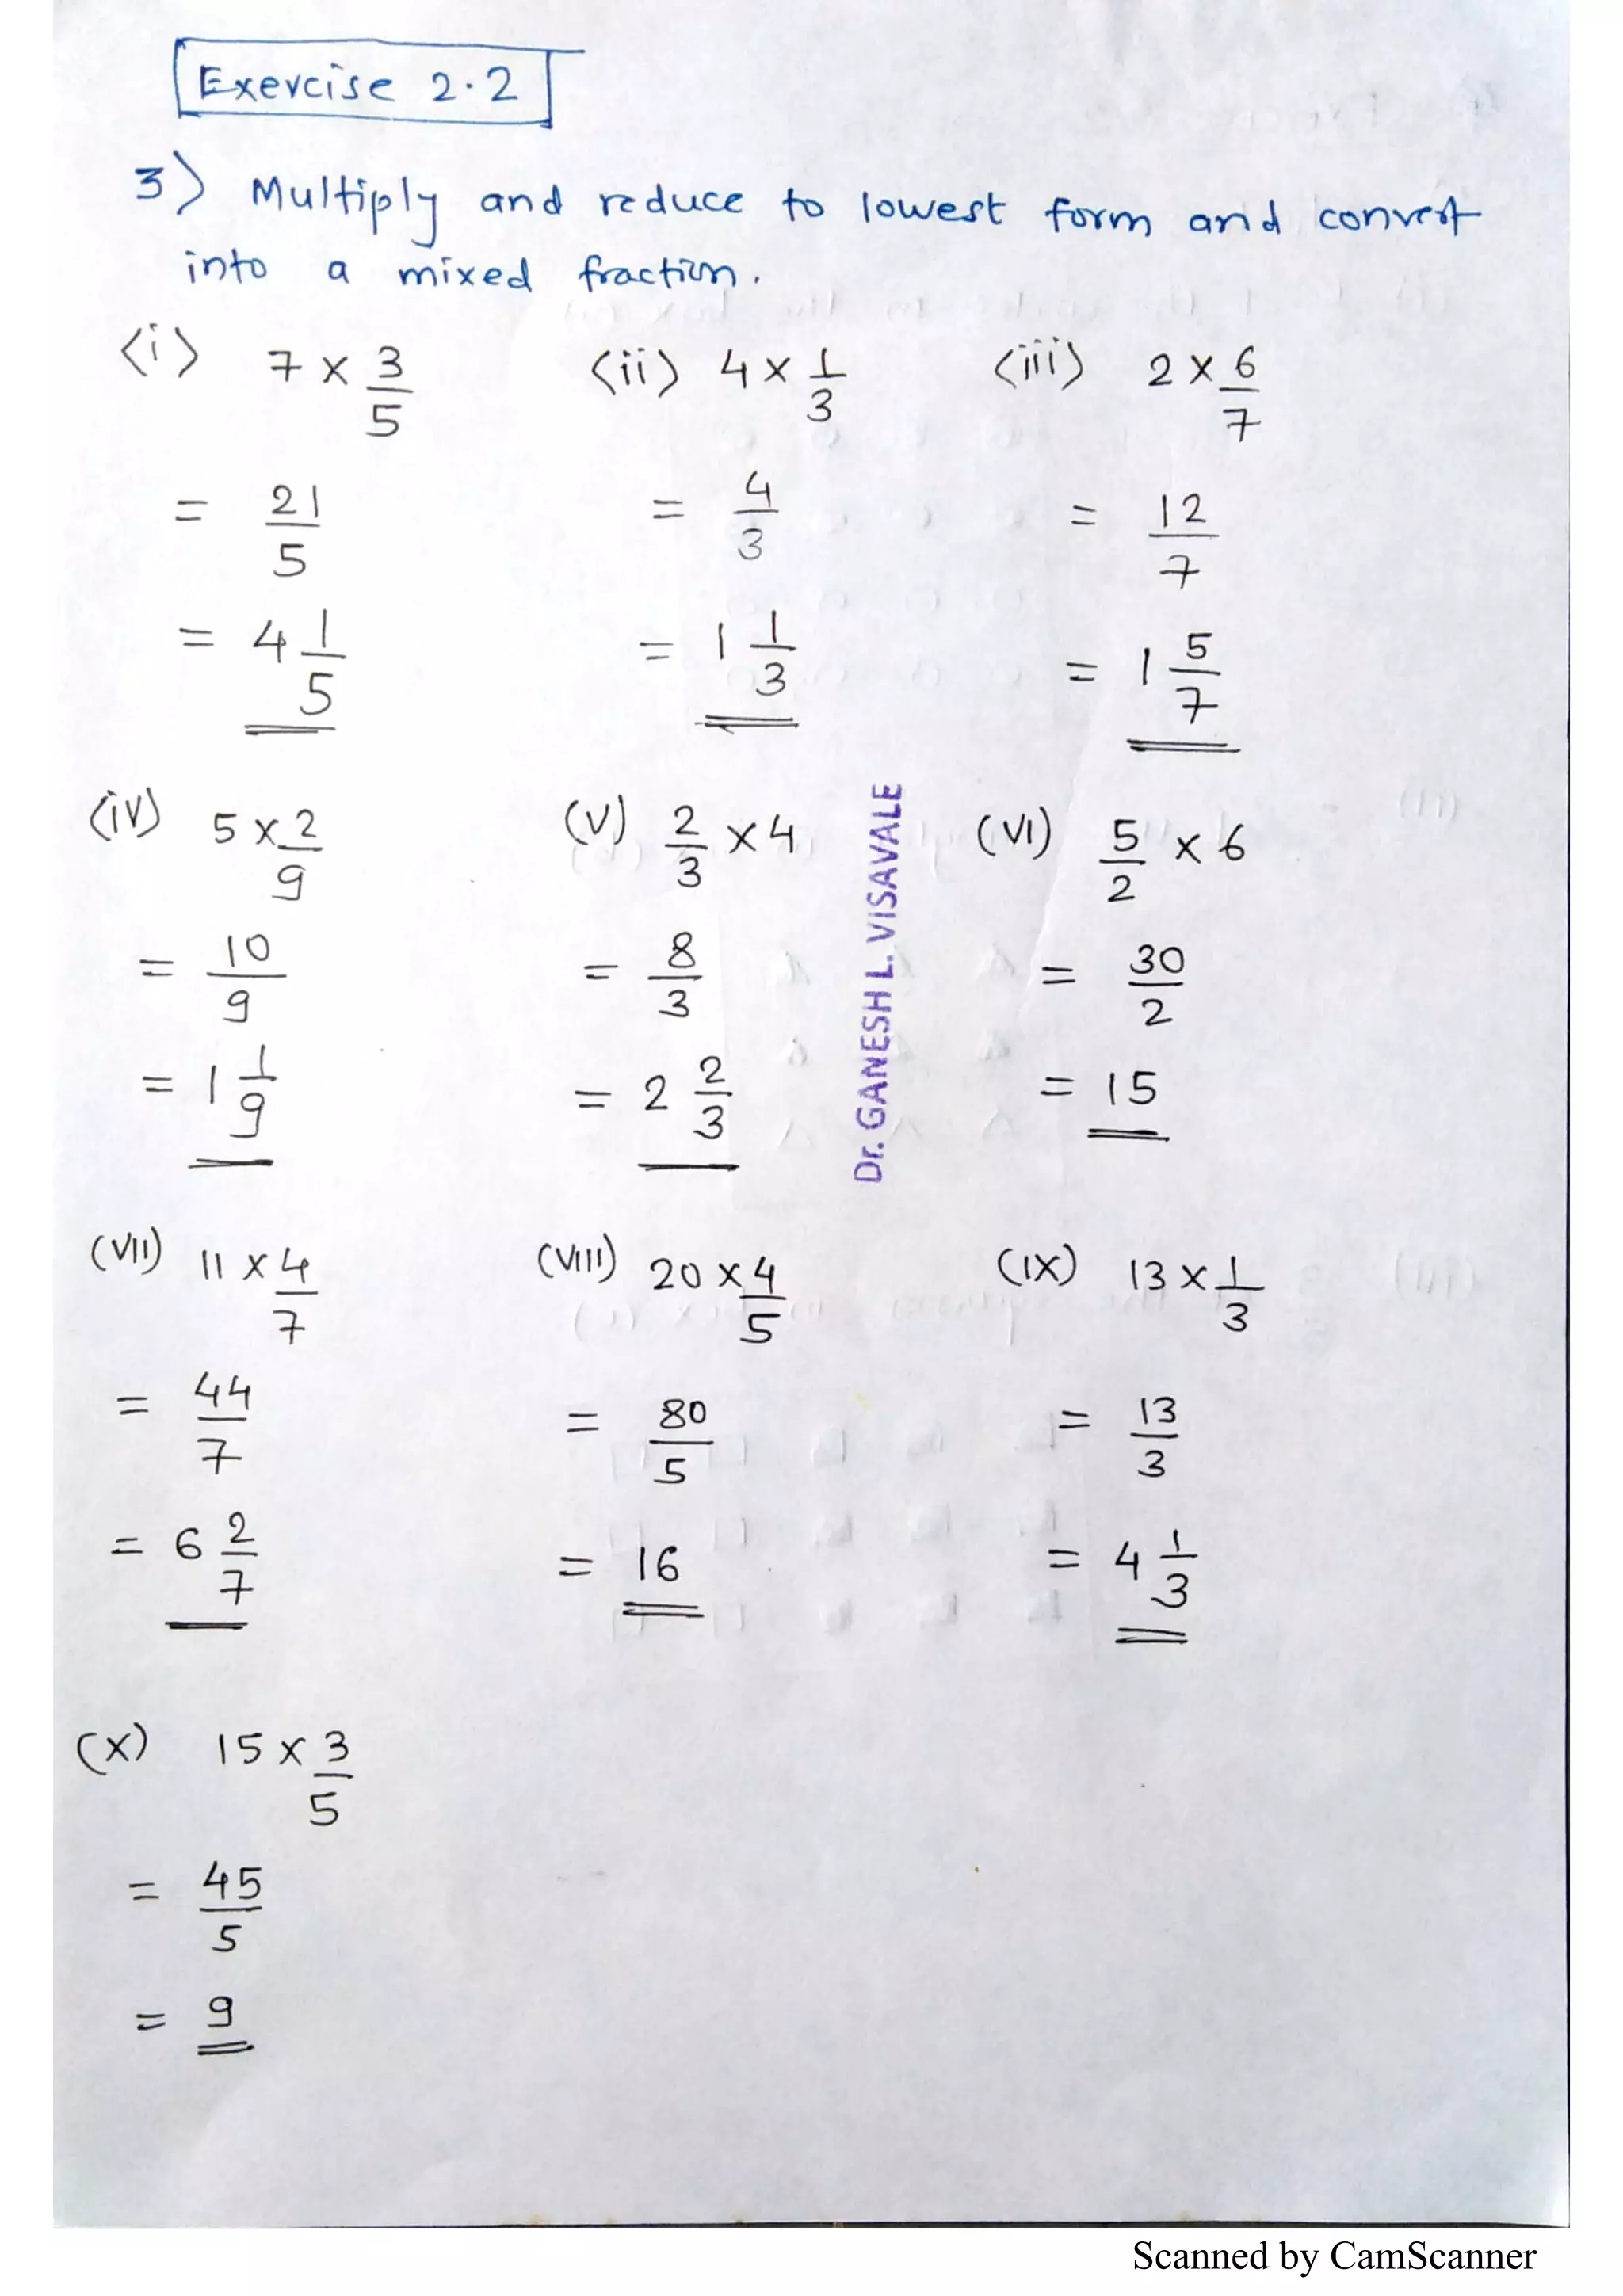 Exercise 2.2
3) Multiply and reduce to lowest form and convert
into a mixed fraction.
(i) 7 × 3/5
= 21/5
= 4 1/5
(ii) 4 × 1/3
= 4/3
= 1 1/3
(iii) 2 × 6/7
= 12/7
= 1 5/7
(iv) 5 × 2/9
= 10/9
= 1 1/9
(v) 2/3 × 4
= 8/3
= 2 2/3
Dr. GANESH L. VISAVALE
(VI) 5/2 × 6
= 30/2
= 15
(VII) 11 × 4/7
= 44/7
= 6 2/7
(VIII) 20 × 4/5
= 80/5
= 16
(IX) 13 × 1/3
= 13/3
= 4 1/3
(X) 15 × 3/5
= 45/5
= 9
Scanned by CamScanner